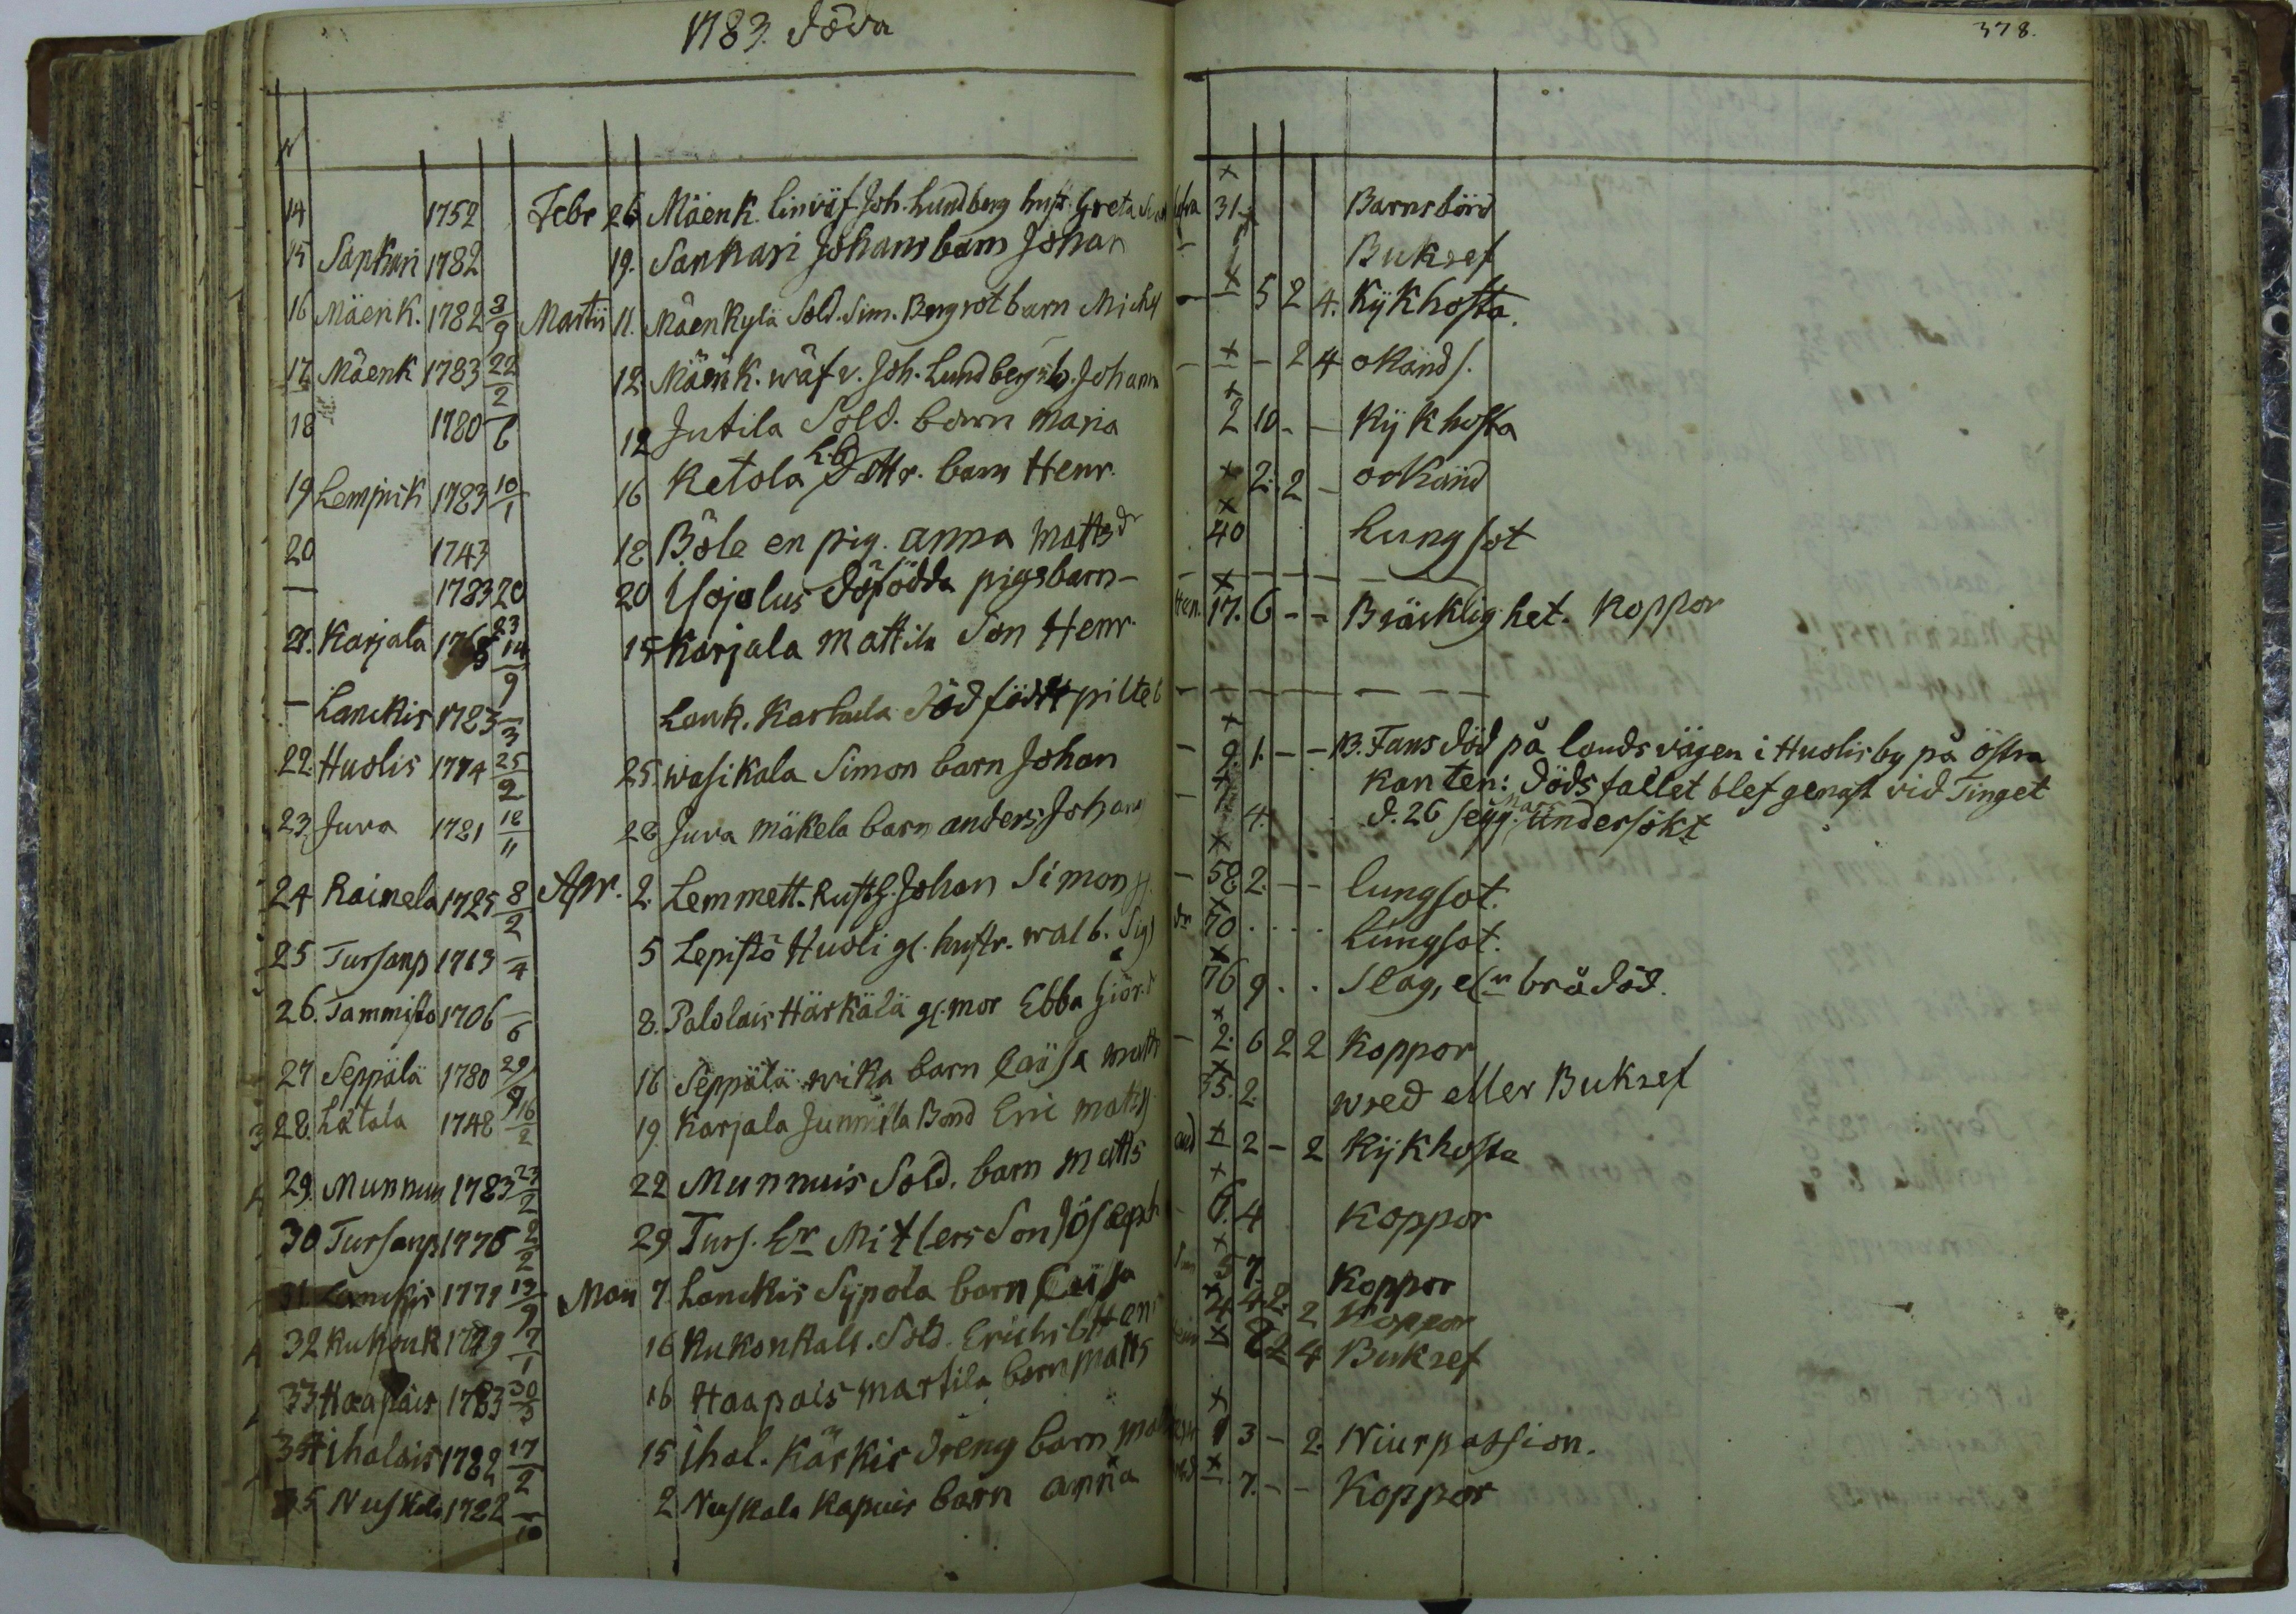 1783. Döda
378.
N
14 1752 Febr 26 Mäenk. linväf. Joh. Lundberg hust. Greta 31. Barnsbörd
15 Sankari 1782 19. Sankari Johans barn Johan - 1 Bukref
16 Mäenk. 1782 3/9 Martii 11. Mäenkylä Sold. Sim. Bergrot barn Michel - - 5 2 4. Kykhosta.
17 Mäenk 1783 22/2 12. Mäenk. wäf v. Joh. Lundbergs b. Johann - - - 2 4 okänds.
18 1780 /6 12 Jutila Sold. barn Maria 2 10 - - Kykhosta
19 Lempisk 1783 10/1 16 Ketola barn Henr. 2. 2 - ookänd
20 1743 18 Böle en pig. Anna Mattsdr 40 Lungsot
- 1783 20 20 Isojalus döfödda pigsbarn - - - - - - -
21. Karjala 1765 14/9 15 Karjala Mattila Son Henr. Hen. 17. 6 - - Bräcklighet. Koppor
- Lanckis 1783 /3 Lank. Karhula Död född pilteb - - - - - - -
22. Huolis 1774 25/2 25. Wasikala Simon barn Johan - 9. 1. - - B. Fans död på landsvägen i Huolis by på östra
kanten: dödsfallet blef genast vid Tinget
23. Juva 1781 18/11 28 Juva Mäkela barn Anders Johans - 1 4. d. 26 Mars undersökt
24 Raimela 1725 8/2 Apr. 2. Lemmett. Rusth. Johan Simons - 58 2. - - lungsot.
25 Tursanp 1713 /4 5 Lepistö Huoli gl. hustr. Walb. Sigf dr 70 . . . Lungsot.
26. Tammisto 1706 /6 8. Palolais Härkälä gl. mor Ebba Giörsd 76 9 . . Slag, elr brådöd.
27 Seppälä 1780 29/9 16 Seppälä wika barn Caisa Matts - 2. 6 2 2 Koppor
28. Lätola 1748 16/2 19 Karjala Junnila Bond Eric Matss 35. 2. wred eller Bukref
29. Munnuis 1783 23/2 22 Munnuis Sold. barn Matts - 2 - 2 Kykhosta
30 Tursanp 1776 2/2 29 Turs. Er. Mitlers Son Josæph - 6. 4 Koppor
31. Lanckis 1777 13/9 Maii 7. Lanckis Sypola barn Caisa 5 7. Koppor
32 Kukonk 1779 7/1 16 Kukonkall. Sold. Erichs b. Hen 4 4. 2. 2 Koppor
33 Haapais 1783 30/3 16 Haapais Martila barn Matts - 2 4 Bukref
34 Ihalais 1782 17/2 15 Ihal. Kärkis Dreng barn 1 3 - 2. Niurpassion.
35 Nuskala 1782 /10 2 Nuskala Kapuis barn Anna - 7. - - Koppor